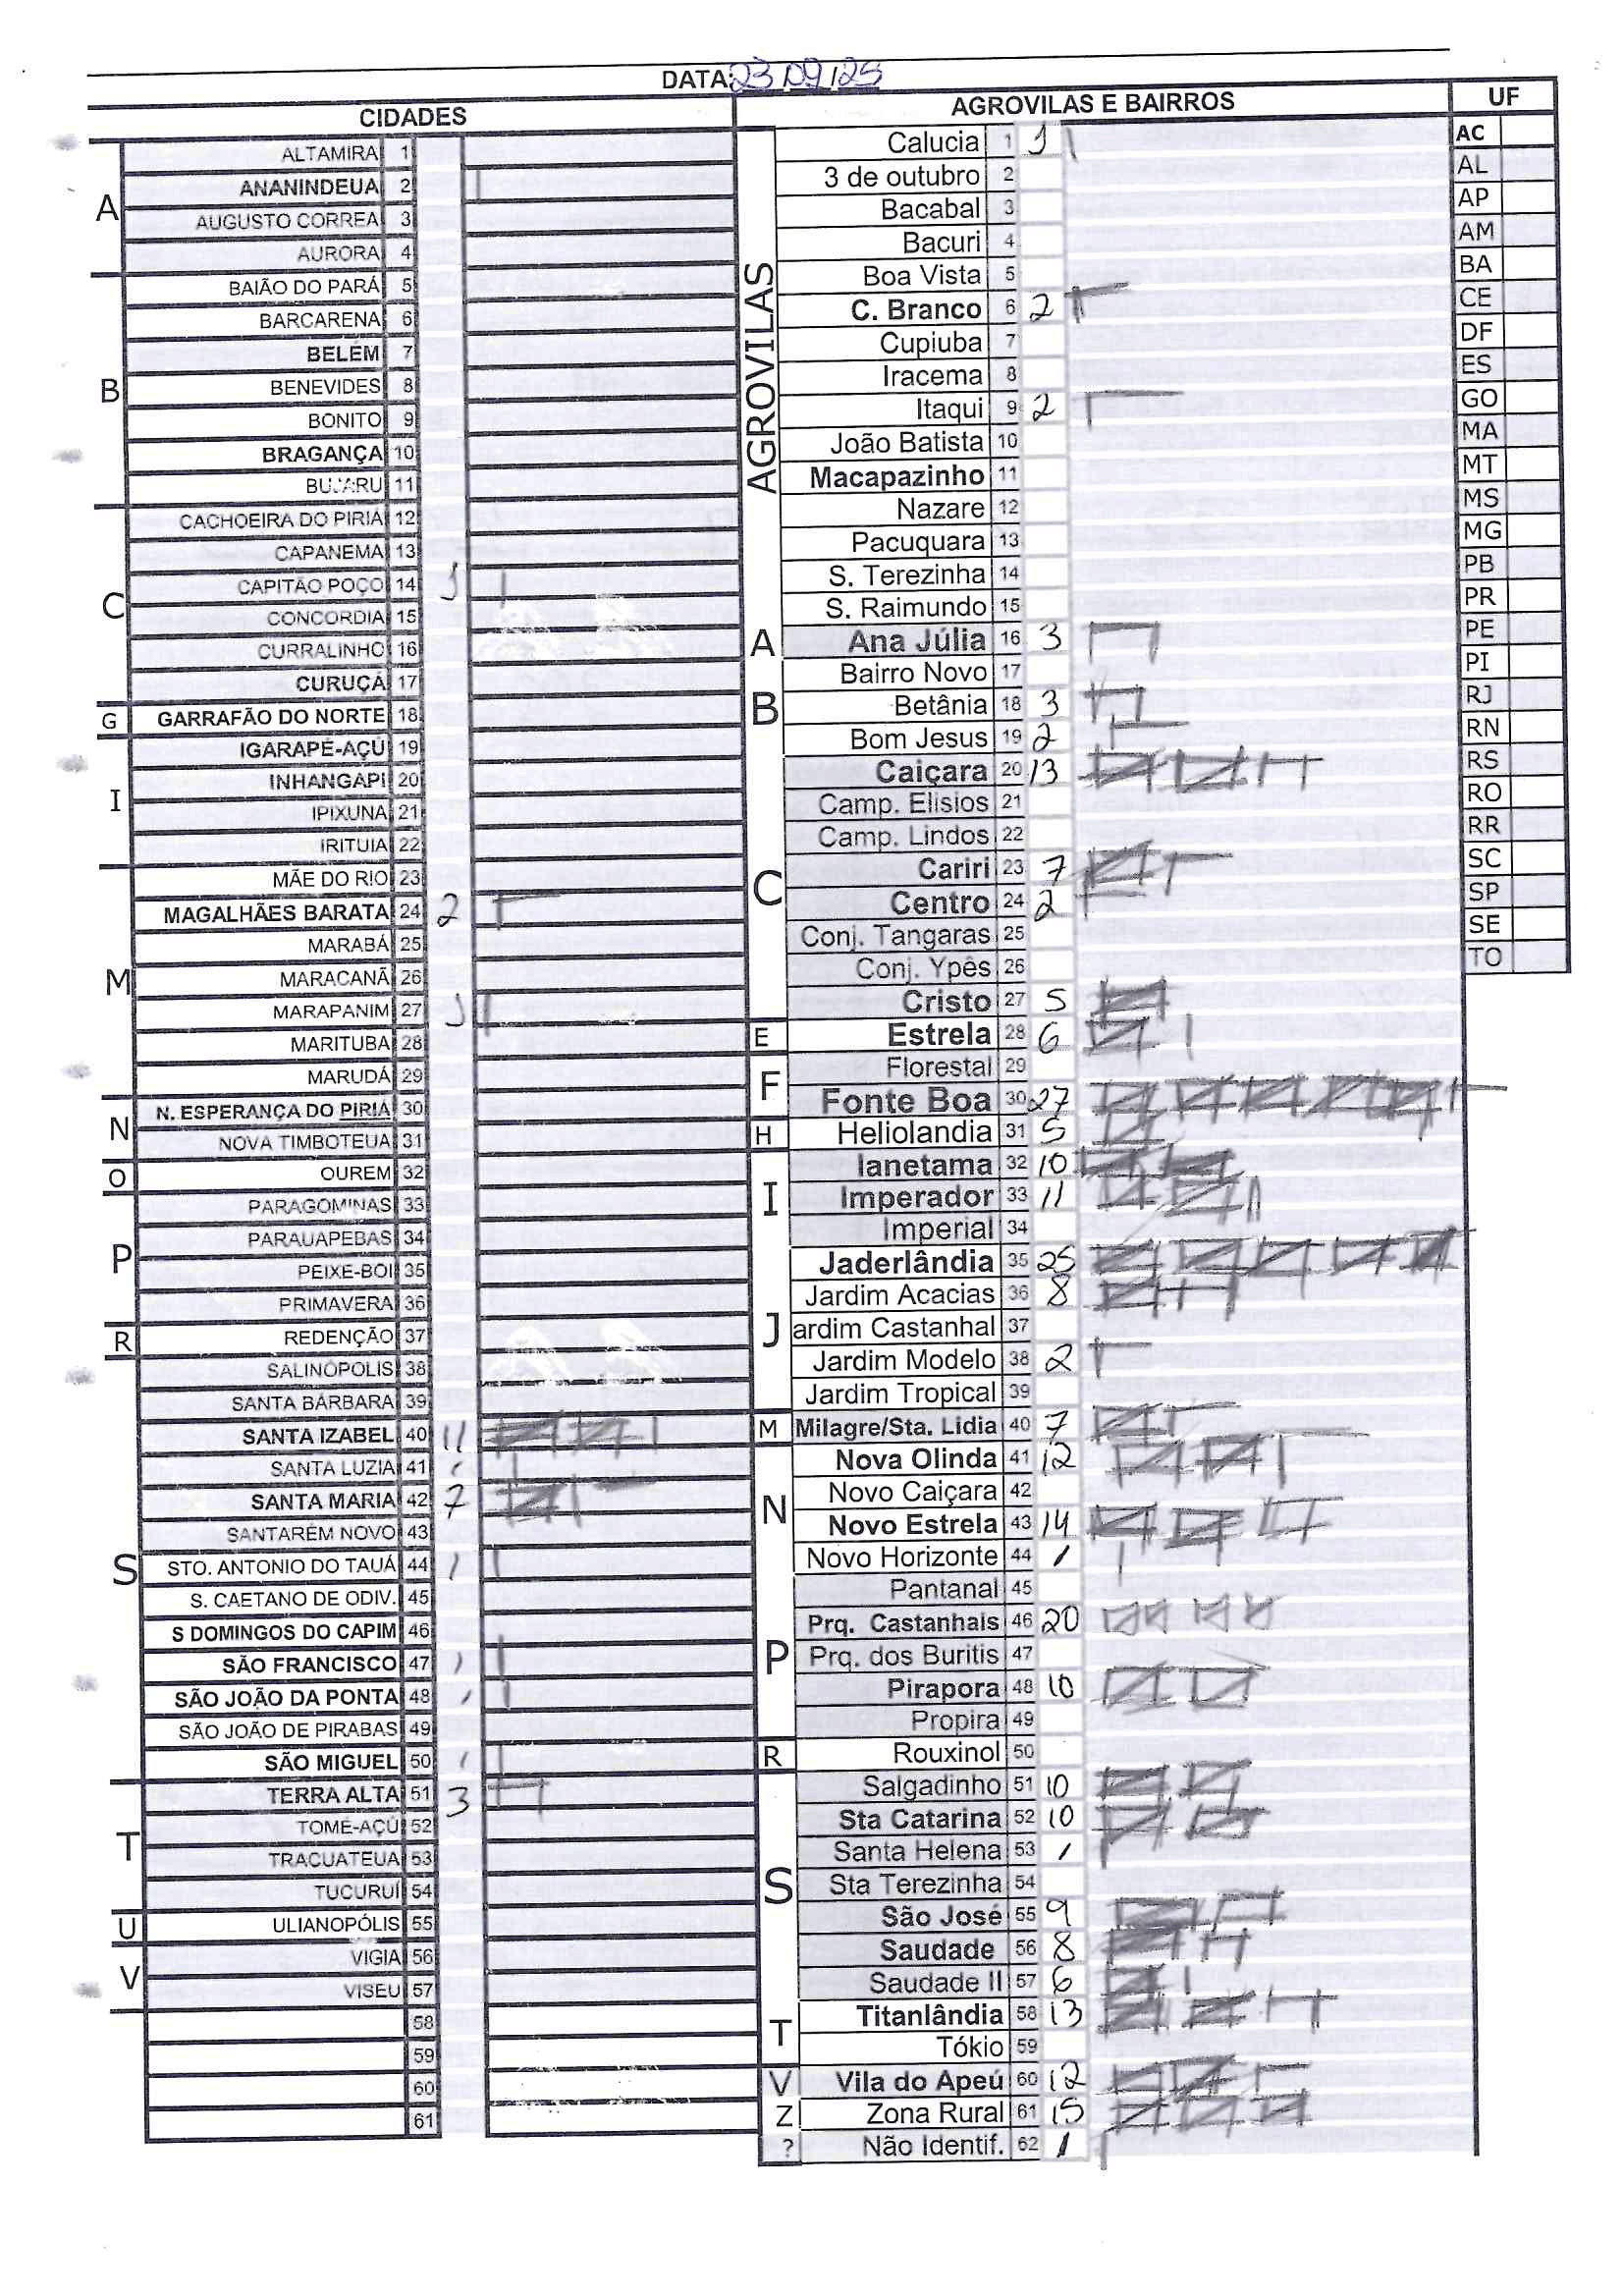 DATA: 23/09/25
CIDADES
A
ALTAMIRA 1
ANANINDEUA 2
AUGUSTO CORREA 3
AURORA 4
B
BAIÃO DO PARÁ 5
BARCARENA 6
BELÉM 7
BENEVIDES 8
BONITO 9
BRAGANÇA 10
BUJARU 11
C
CACHOEIRA DO PIRIÁ 12
CAPANEMA 13
CAPITÃO POÇO 14 1
CONCORDIA 15
CURRALINHO 16
CURUÇÁ 17
G
GARRAFÃO DO NORTE 18
I
IGARAPÉ-AÇÚ 19
INHANGAPI 20
IPIXUNA 21
IRITUIA 22
M
MÃE DO RIO 23
MAGALHÃES BARATA 24 2
MARABÁ 25
MARACANÃ 26
MARAPANIM 27 1
MARITUBA 28
MARUDÁ 29
N
N. ESPERANÇA DO PIRIÁ 30
NOVA TIMBOTEUA 31
O
OUREM 32
P
PARAGOMINAS 33
PARAUAPEBAS 34
PEIXE-BOI 35
PRIMAVERA 36
R
REDENÇÃO 37
S
SALINÓPOLIS 38
SANTA BÁRBARA 39
SANTA IZABEL 40 11
SANTA LUZIA 41 1
SANTA MARIA 42 7
SANTARÉM NOVO 43
STO. ANTONIO DO TAUÁ 44 1
S. CAETANO DE ODIV. 45
S DOMINGOS DO CAPIM 46
SÃO FRANCISCO 47 1
SÃO JOÃO DA PONTA 48 1
SÃO JOÃO DE PIRABAS 49
SÃO MIGUEL 50 1
T
TERRA ALTA 51 3
TOMÉ-AÇÚ 52
TRACUATEUA 53
TUCURUÍ 54
U
ULIANOPÓLIS 55
V
VIGIA 56
VISEU 57
58
59
60
61
AGROVILAS E BAIRROS
AGROVILAS
Calucia 1 1
3 de outubro 2
Bacabal 3
Bacuri 4
Boa Vista 5
C. Branco 6 2
Cupiuba 7
Iracema 8
Itaqui 9 2
João Batista 10
Macapazinho 11
Nazare 12
Pacuquara 13
S. Terezinha 14
S. Raimundo 15
A
Ana Júlia 16 3
B
Bairro Novo 17
Betânia 18 3
Bom Jesus 19 2
C
Caiçara 20 13
Camp. Elisios 21
Camp. Lindos 22
Cariri 23 7
Centro 24 2
Conj. Tangaras 25
Conj. Ypês 26
Cristo 27 5
E
Estrela 28 6
F
Florestal 29
Fonte Boa 30 27
H
Heliolandia 31 5
I
Ianetama 32 10
Imperador 33 11
Imperial 34
J
Jaderlândia 35 25
Jardim Acacias 36 8
ardim Castanhal 37
Jardim Modelo 38 2
Jardim Tropical 39
M
Milagre/Sta. Lidia 40 7
N
Nova Olinda 41 12
Novo Caiçara 42
Novo Estrela 43 14
Novo Horizonte 44 1
P
Pantanal 45
Prq. Castanhais 46 20
Prq. dos Buritis 47
Pirapora 48 10
Propira 49
R
Rouxinol 50
S
Salgadinho 51 10
Sta Catarina 52 10
Santa Helena 53 1
Sta Terezinha 54
São José 55 9
Saudade 56 8
Saudade II 57 6
T
Titanlândia 58 13
Tókio 59
V
Vila do Apeú 60 12
Z
Zona Rural 61 15
?
Não Identif. 62 1
UF
AC
AL
AP
AM
BA
CE
DF
ES
GO
MA
MT
MS
MG
PB
PR
PE
PI
RJ
RN
RS
RO
RR
SC
SP
SE
TO